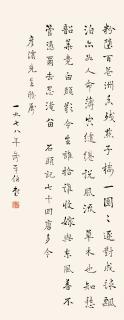 粉墮百花洲香殘燕子樓一團〻逐對成毬飄
泊亦如人命薄空繾綣說風流草木也知愁
韶華竟白頭歎今生誰拾誰收嫁與東風春不
管憑爾去忍淹留 石頭記七十回唐多令
一九七八年